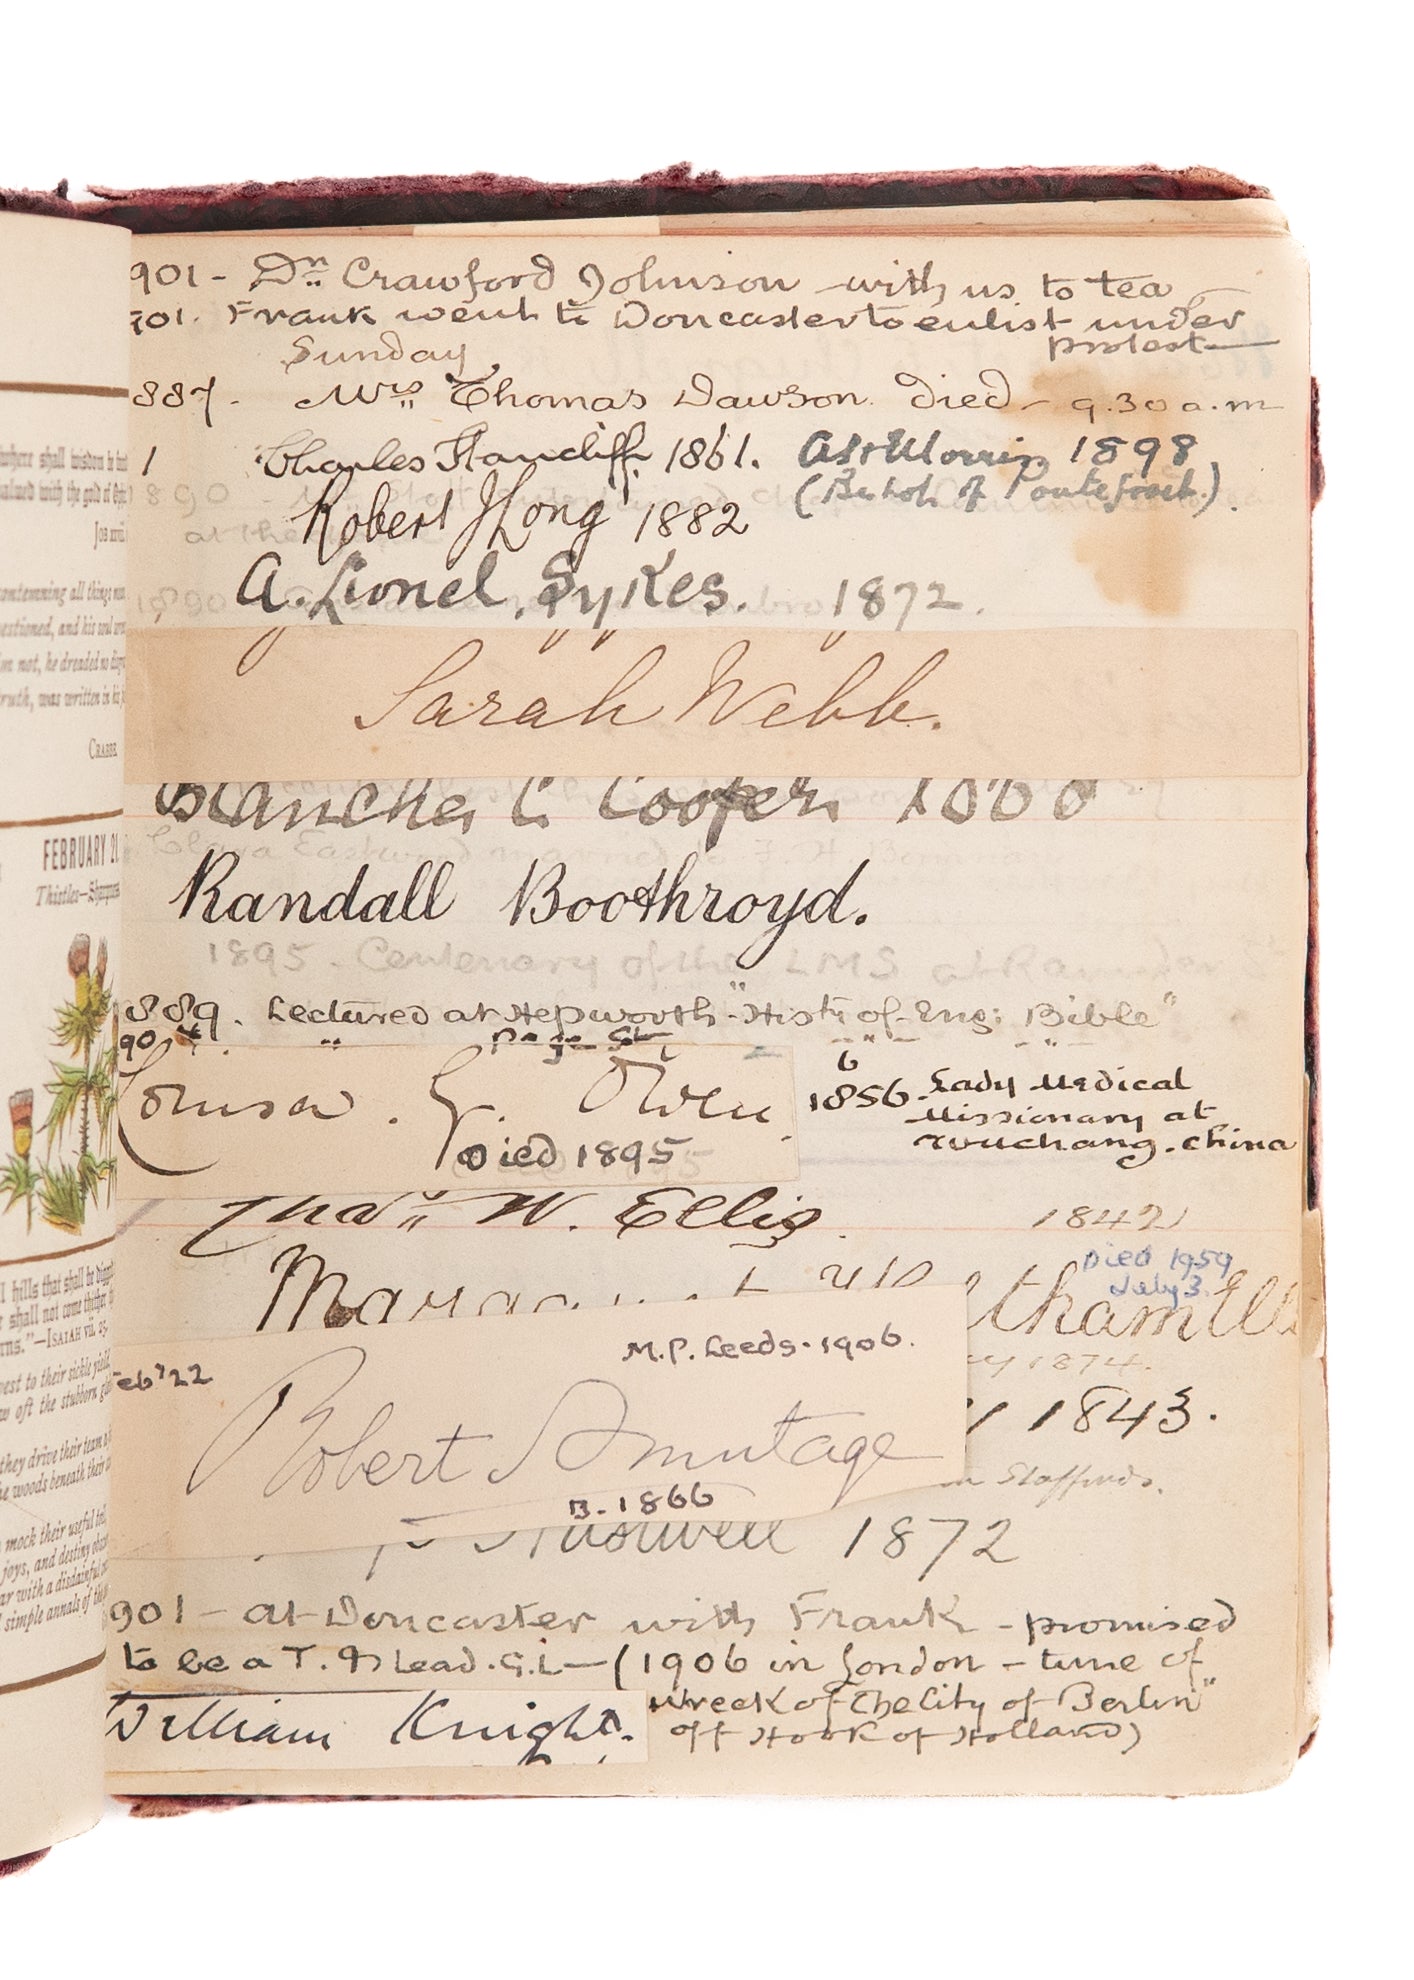 where shall wisdom be
valued with the gold of
Job
contemning all things
estioned, and his soul
not, he dreaded no
truth, was written in his
Crabbe
FEBRUARY 21
Thistles—Sharpness
hills that shall be digged
shall not come thither
rns."—Isaiah vii. 25.
vest to their sickle yield,
w oft the stubborn
they drive their team
he woods beneath their
mock their useful toil,
joys, and destiny
ar with a disdainful
simple annals of the
901 - Dr. Crawford Johnson with us to tea
901. Frank went to Doncaster to enlist under
protest
Sunday
887. Mrs. Thomas Dawson died - 9.30 a.m
1 Charles Stancliff. 1861.
1898
(Bishop of Pontefract.).
Robert J Long 1882
A. Lionel Sykes. 1872.
Sarah Webb.
Blanche C Cooper
Randall Boothroyd.
1895 - Centenary of the LMS at
889. Lectured at Hepworth "Hist: of Eng: Bible"
90
Louisa. G. Owen.
Died 1895
6
1856. Lady Medical
Missionary at
Wuchang. China
Thos. W. Ellis. 1842
Died 1959
July 3.
1874.
M.P. Leeds. 1906.
eb' 22
1843.
Robert Armitage
B. 1866
Staffords.
1872
901 - at Doncaster with Frank - promised
to be a T. M Lead. G.L - (1906 in London - time of
wreck of the City of Berlin"
off Hook of Holland)
William Knight.